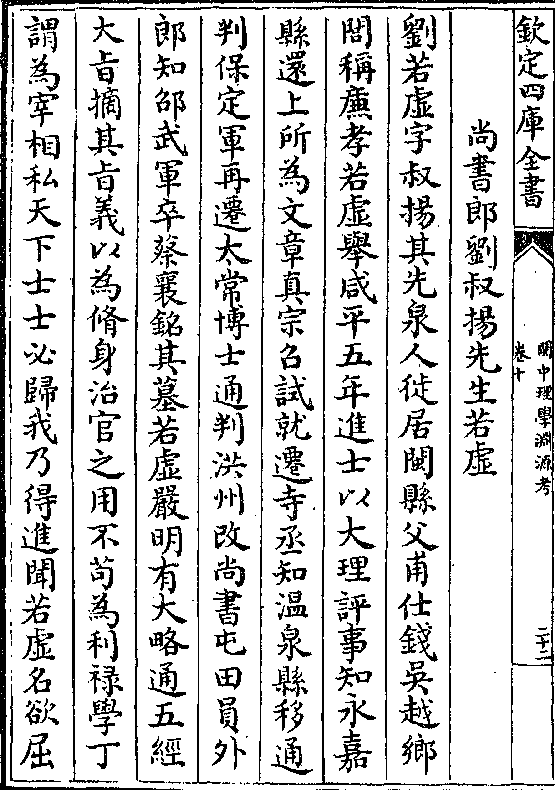 欽定四庫全書
閩中理學淵源考
卷十
二十二
尚書郎劉叔揚先生若虚
劉若虚字叔揚其先泉人徙居閩縣父甫仕錢吳越鄉
閭稱廉孝若虚舉咸平五年進士以大理評事知永嘉
縣還上所為文章真宗召試就遷寺丞知温泉縣移通
判保定軍再遷太常博士通判洪州改尚書屯田員外
郎知邵武軍卒蔡襄銘其墓若虚嚴明有大略通五經
大㫖摘其㫖義以為脩身治官之用不苟為利禄學丁
謂為宰相私天下士士必歸我乃得進聞若虚名欲屈